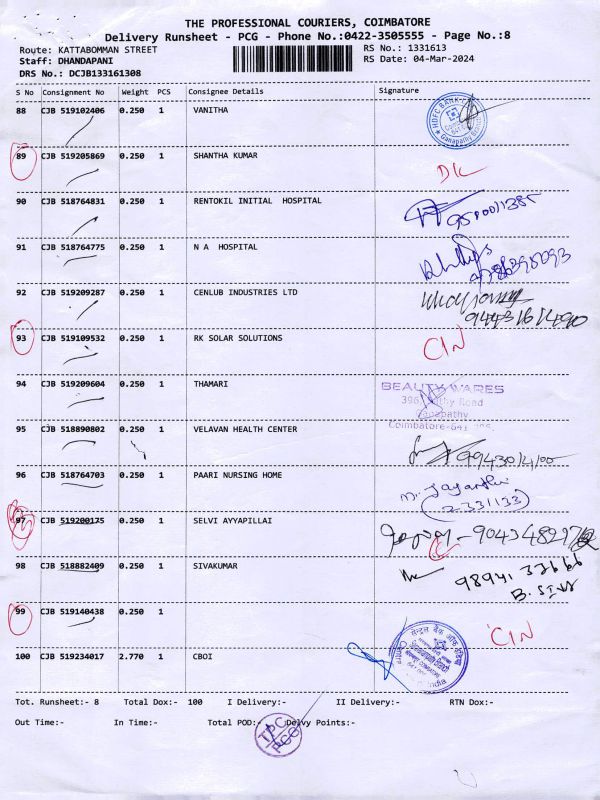 THE PROFESSIONAL COURIERS, COIMBATORE
Delivery Runsheet - PCG - Phone No.:0422-3505555 - Page No.:8
Route: KATTABOMMAN STREET RS No.: 1331613
Staff: DHANDAPANI RS Date: 04-Mar-2024
DRS No.: DCJB133161308
S No Consignment No Weight PCS Consignee Details Signature
88 CJB 519102406 0.250 1 VANITHA
HDFC BANK
89 CJB 519205869 0.250 1 SHANTHA KUMAR
DK
90 CJB 518764831 0.250 1 RENTOKIL INITIAL HOSPITAL
91 CJB 518764775 0.250 1 N A HOSPITAL
92 CJB 519209287 0.250 1 CENLUB INDUSTRIES LTD
93 CJB 519109532 0.250 1 RK SOLAR SOLUTIONS
CIN
94 CJB 519209604 0.250 1 THAMARI
BEAUTY WARES
Road
Ganapathy
Coimbatore-641
95 CJB 518890802 0.250 1 VELAVAN HEALTH CENTER
96 CJB 518764703 0.250 1 PAARI NURSING HOME
2331133
97 CJB 519200175 0.250 1 SELVI AYYAPILLAI
98 CJB 518882409 0.250 1 SIVAKUMAR
B. SIVA
99 CJB 519140438 0.250 1
CIN
100 CJB 519234017 2.770 1 CBOI
Tot. Runsheet:- 8 Total Dox:- 100 I Delivery:- II Delivery:- RTN Dox:-
Out Time:- In Time:- Total POD:- Delvy Points:-
TPC
PCG